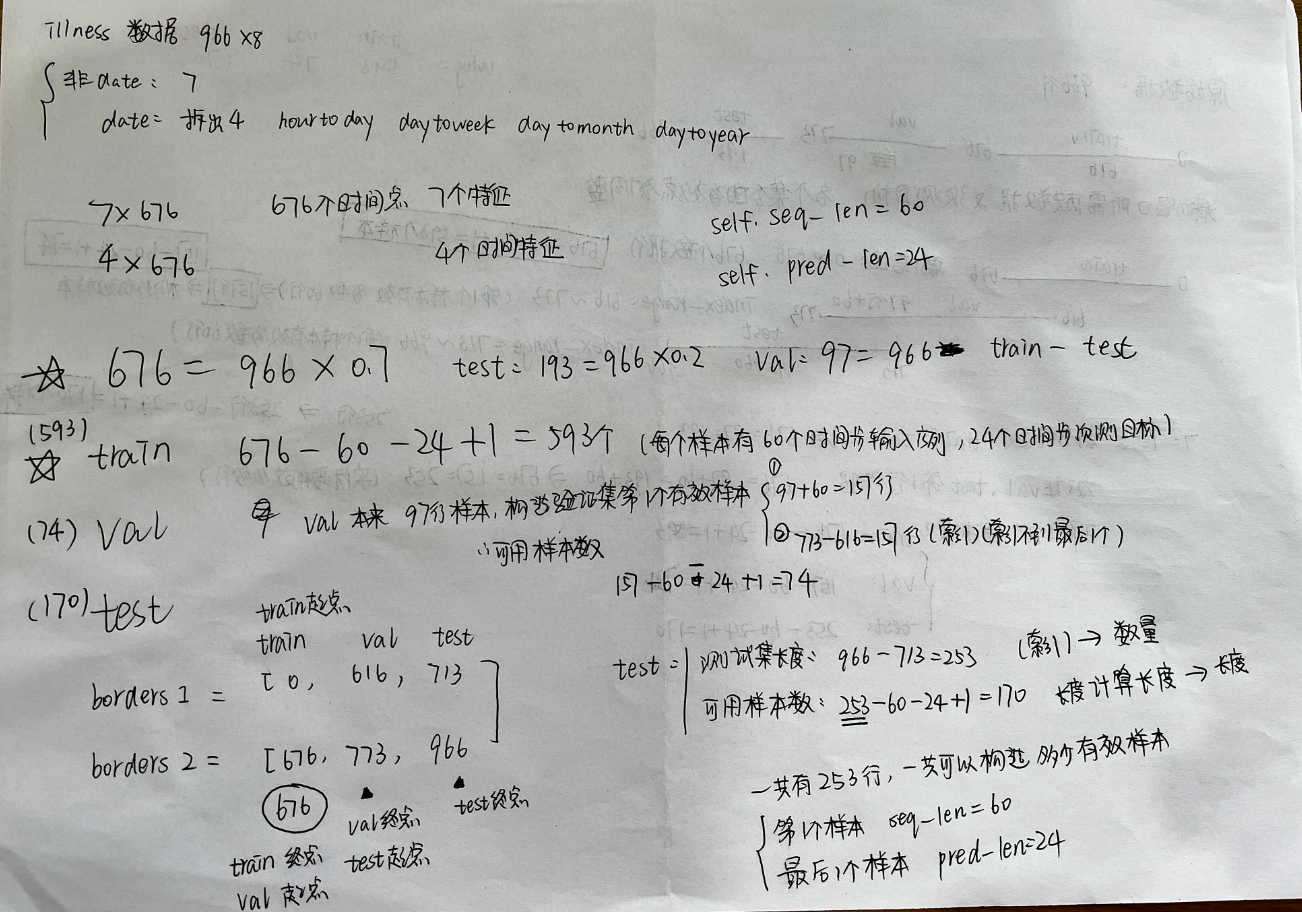 illness 数据 966×8
非date: 7
date= 拆出4 hour to day day to week day to month day to year
7×676 676个时间点 7个特征
4×676 4个时间特征
self. seq_len=60
self. pred-len=24
☆ 676= 966×0.7 test: 193=966×0.2 val: 97=966- train-test
(593)
☆ train 676-60-24+1=593个 (每个样本有60个时间步输入序列, 24个时间步预测目标)
(74) val val 本来 97行样本, 构造验证集第1个有效样本
① 97+60=157行
② 773-616=157行(索引)(索引不到最后1个)
∴可用样本数
157-60-24+1=74
(170) test
train起点
train val test
borders 1 = [0, 616, 713]
borders 2 = [676, 773, 966
676
val终点 test终点
train 终点 test起点
val 起点
test= 测试集长度: 966-713=253 (索引)→数量
可用样本数: 253-60-24+1=170 长度计算长度→长度
一共有253行, 一共可以构造多少有效样本
第1个样本 seq-len=60
最后1个样本 pred-len=24